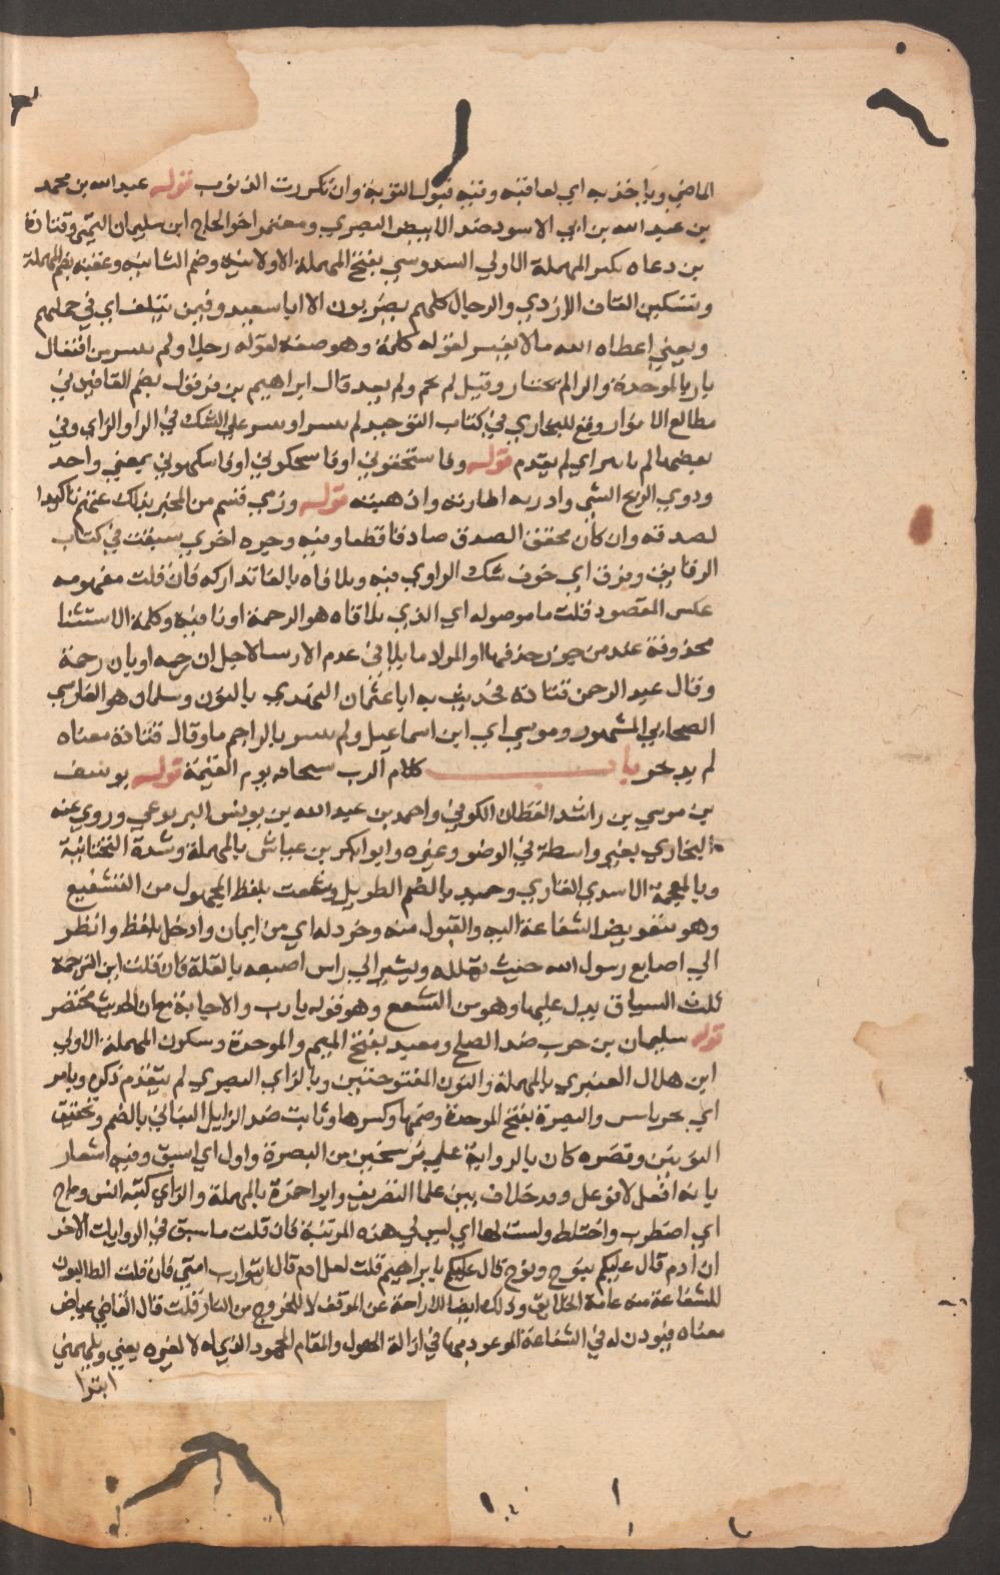 الماضي وياخذ به اي لعاقبته وفيه قبول التوبة وان تكررت الذنوب قوله عبد الله بن محمد
بن عبد الله بن ابي الاسود ضد الابيض البصري ومعتمر اخو الحاج ابن سليمان التيمي وقتادة
بن دعامه بكسر المهملة الاولي السدوسي بفتح المهملة الاولي وضم الثانيه وعقبه بضم المهملة
وتسكين القاف الازدي والرجال كلهم بصريون الا ابا سعيد وفيمن سلف اي في جملتهم
ويعني اعطاه الله مالا تفسير لقوله كلمة وهو صفة لقوله رجلا ولم يبتئر من افتعال
بار بالموحدة والرا لم يختار وقيل لم ولم يعد قال ابراهيم بن قرقول بضم القافين في
مطالع الانوار وقع للبخاري في كتاب التوحيد لم يبتئر او يبتئز علي الشك في الرا والزاي وفي
بعضها لم ياتبر اي لم يقدم قوله وفاستحقوني او فاسحكوني او فاسهكوني بمعني واحد
وذري الريح الشي واذريه اطارته واذهبته قوله وربي قسم من المخبر بذلك عنهم تاكيدا
لصدقه وان كان محقق الصدق صادقا قطعا وفيه وجوه اخري سبقت في كتاب
الرقايق وفرق اي خوف شك الراوي فيه وتلافاه بالفا تداركه فان قلت مفهومه
عكس المقصود قلت ما موصوله اي الذي تلافاه هو الرحمة او نافية وكلمة الاستثنا
محذوفة عند من جوز حذفها او المراد ما تلافي عدم الارسال لاجل ان رحمه او بان رحمة
وقال عبد الرحمن قتادة بحديث به ابا عثمان النهدي بالنون وسلمان هو الفارسي
الصحابي المشهور وموسي اي ابن اسماعيل ولم يبتئر بالرا جزما وقال قتادة معناه
لم يدخر باب كلام الرب سبحانه يوم القيمة قوله يوسف
بن موسي بن راشد القطان الكوفي واحمد بن عبد الله بن يونس اليربوعي وروي عنه
البخاري بغير واسطة في الوضو وغيره وابو بكر بن عياش بالمهملة وشدة التحتانية
وبالمعجمة الاسدي القاري وحميد بالضم الطويل وشفعت بلفظ المجهول من التشفيع
وهو تفويض الشفاعة اليه والقبول منه وخردله اي من ايمان وادخل بلفظ وانظر
الي اصابع رسول الله حيث يقلله ويشير الي راس اصبعه بالقلة فان قلت اين الترجمة
قلت السياق يدل عليها وهو من التشفع وهو قوله يا رب والاجابة مع ان الحديث مختصر
قوله سليمان بن حرب ضد الصلح ومعبد بفتح الميم والموحدة وسكون المهملة الاولي
ابن هلال العنبري بالمهملة والنون المفتوحتين وبالزاي البصري لم يتقدم ذكره وبامر
اي والبصرة بفتح الموحدة وضمها وكسرها وثابت ضد الزايل البناني بالضم وتخفيف
النونين وقصره كان بالرواية علي فرسخين من البصرة واول اي اسبق وفيه اشعار
بانه افعل لا فوعل وفيه خلاف بين علما التصريف وابو حمزة بالمهملة والزاي كنية انس وماج
اي اضطرب واختلط ولست لها اي ليس لي هذه المرتبة فان قلت ما سبق في الروايات الاخر
ان ادم قال عليكم بنوح ونوح قال عليكم بابراهيم قلت لعل ادم قال يا رب امتي فان قلت الطالبون
للشفاعة منه عامة الخلايق وذلك ايضا للاراحة عن الموقف لا للخروج من النار قلت قال القاضي عياض
معناه فيوذن له في الشفاعة الموعود بها في ازالة الهول والمقام المحمود الذي له لا لغيره يعني ويلهمني
ابتدا